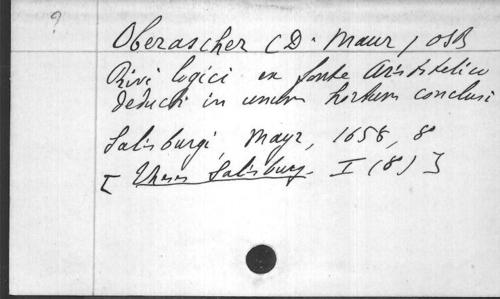 ?
Oberascher (D. Maur) OSB
Rivi logici ex fonte Aristotelico
deducti in unum hortum conclusi
Salisburgi, Mayr, 1658, 8
[ Theses Salisburg. I (8) ]